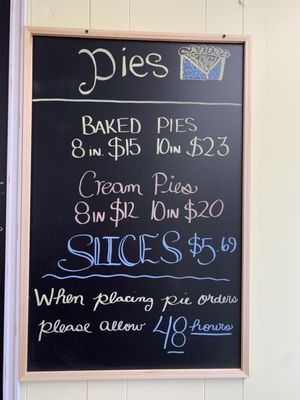 Pies
BAKED PIES
8 IN. $15 10 IN $23
Cream Pies
8 IN $12 10 IN $20
SLICES $5.69
When placing pie orders
please allow 48 hours